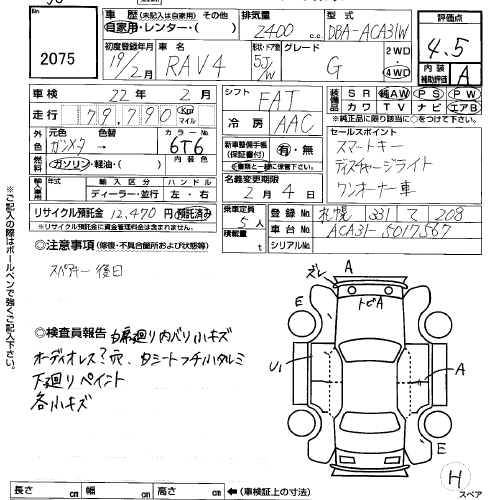 2075
車歴(未記入は自家用) その他
自家用・レンター・( )
排気量
2400 c.c
型式
DBA-ACA31W
評価点
4.5
内装
補助評価
A
初度登録年月
19/2月
車名
RAV4
形状・ドア数
5J/W
グレード
G
2WD
4WD
車検 22年 2月
走行 79,790 Km マイル
シフト FAT
装備品
SR 純AW PS PW
カワ TV ナビ エアB
*純正品に限り該当に○をつけて下さい。
外色
元色 ガンメタ
色替 →
カラーNo 6T6
冷房 AAC
セールスポイント
スマートキー
ディスチャージライト
ワンオーナー車
燃料
ガソリン・軽油・( )
内装色
新車整備手帳
(保証書付)
有・無
※書類と一緒に保管して下さい。
輸入車用
年式
輸入区分
ディーラー・並行
ハンドル
左・右
名義変更期限
2月 4日
リサイクル預託金 12,470円 預託済み
*リサイクル預託金に資金管理料金は含まれておりません。
乗車定員 5人
積載量 t
登録No 札幌 331 て 208
車台No ACA31-5017567
シリアルNo
◎注意事項(修復・不具合箇所および状態等)
スペアキー後日
※ご記入の際はボールペンで強くご記入下さい。
◎検査員報告 内席廻り内バリ小キズ
オーディオレス?穴、Dシートフチ小タルミ
下廻りペイント
各小キズ
ズレ
A
トビA
E
U1
A
E
H
スペア
長さ cm 幅 cm 高さ cm ←(車検証上の寸法)